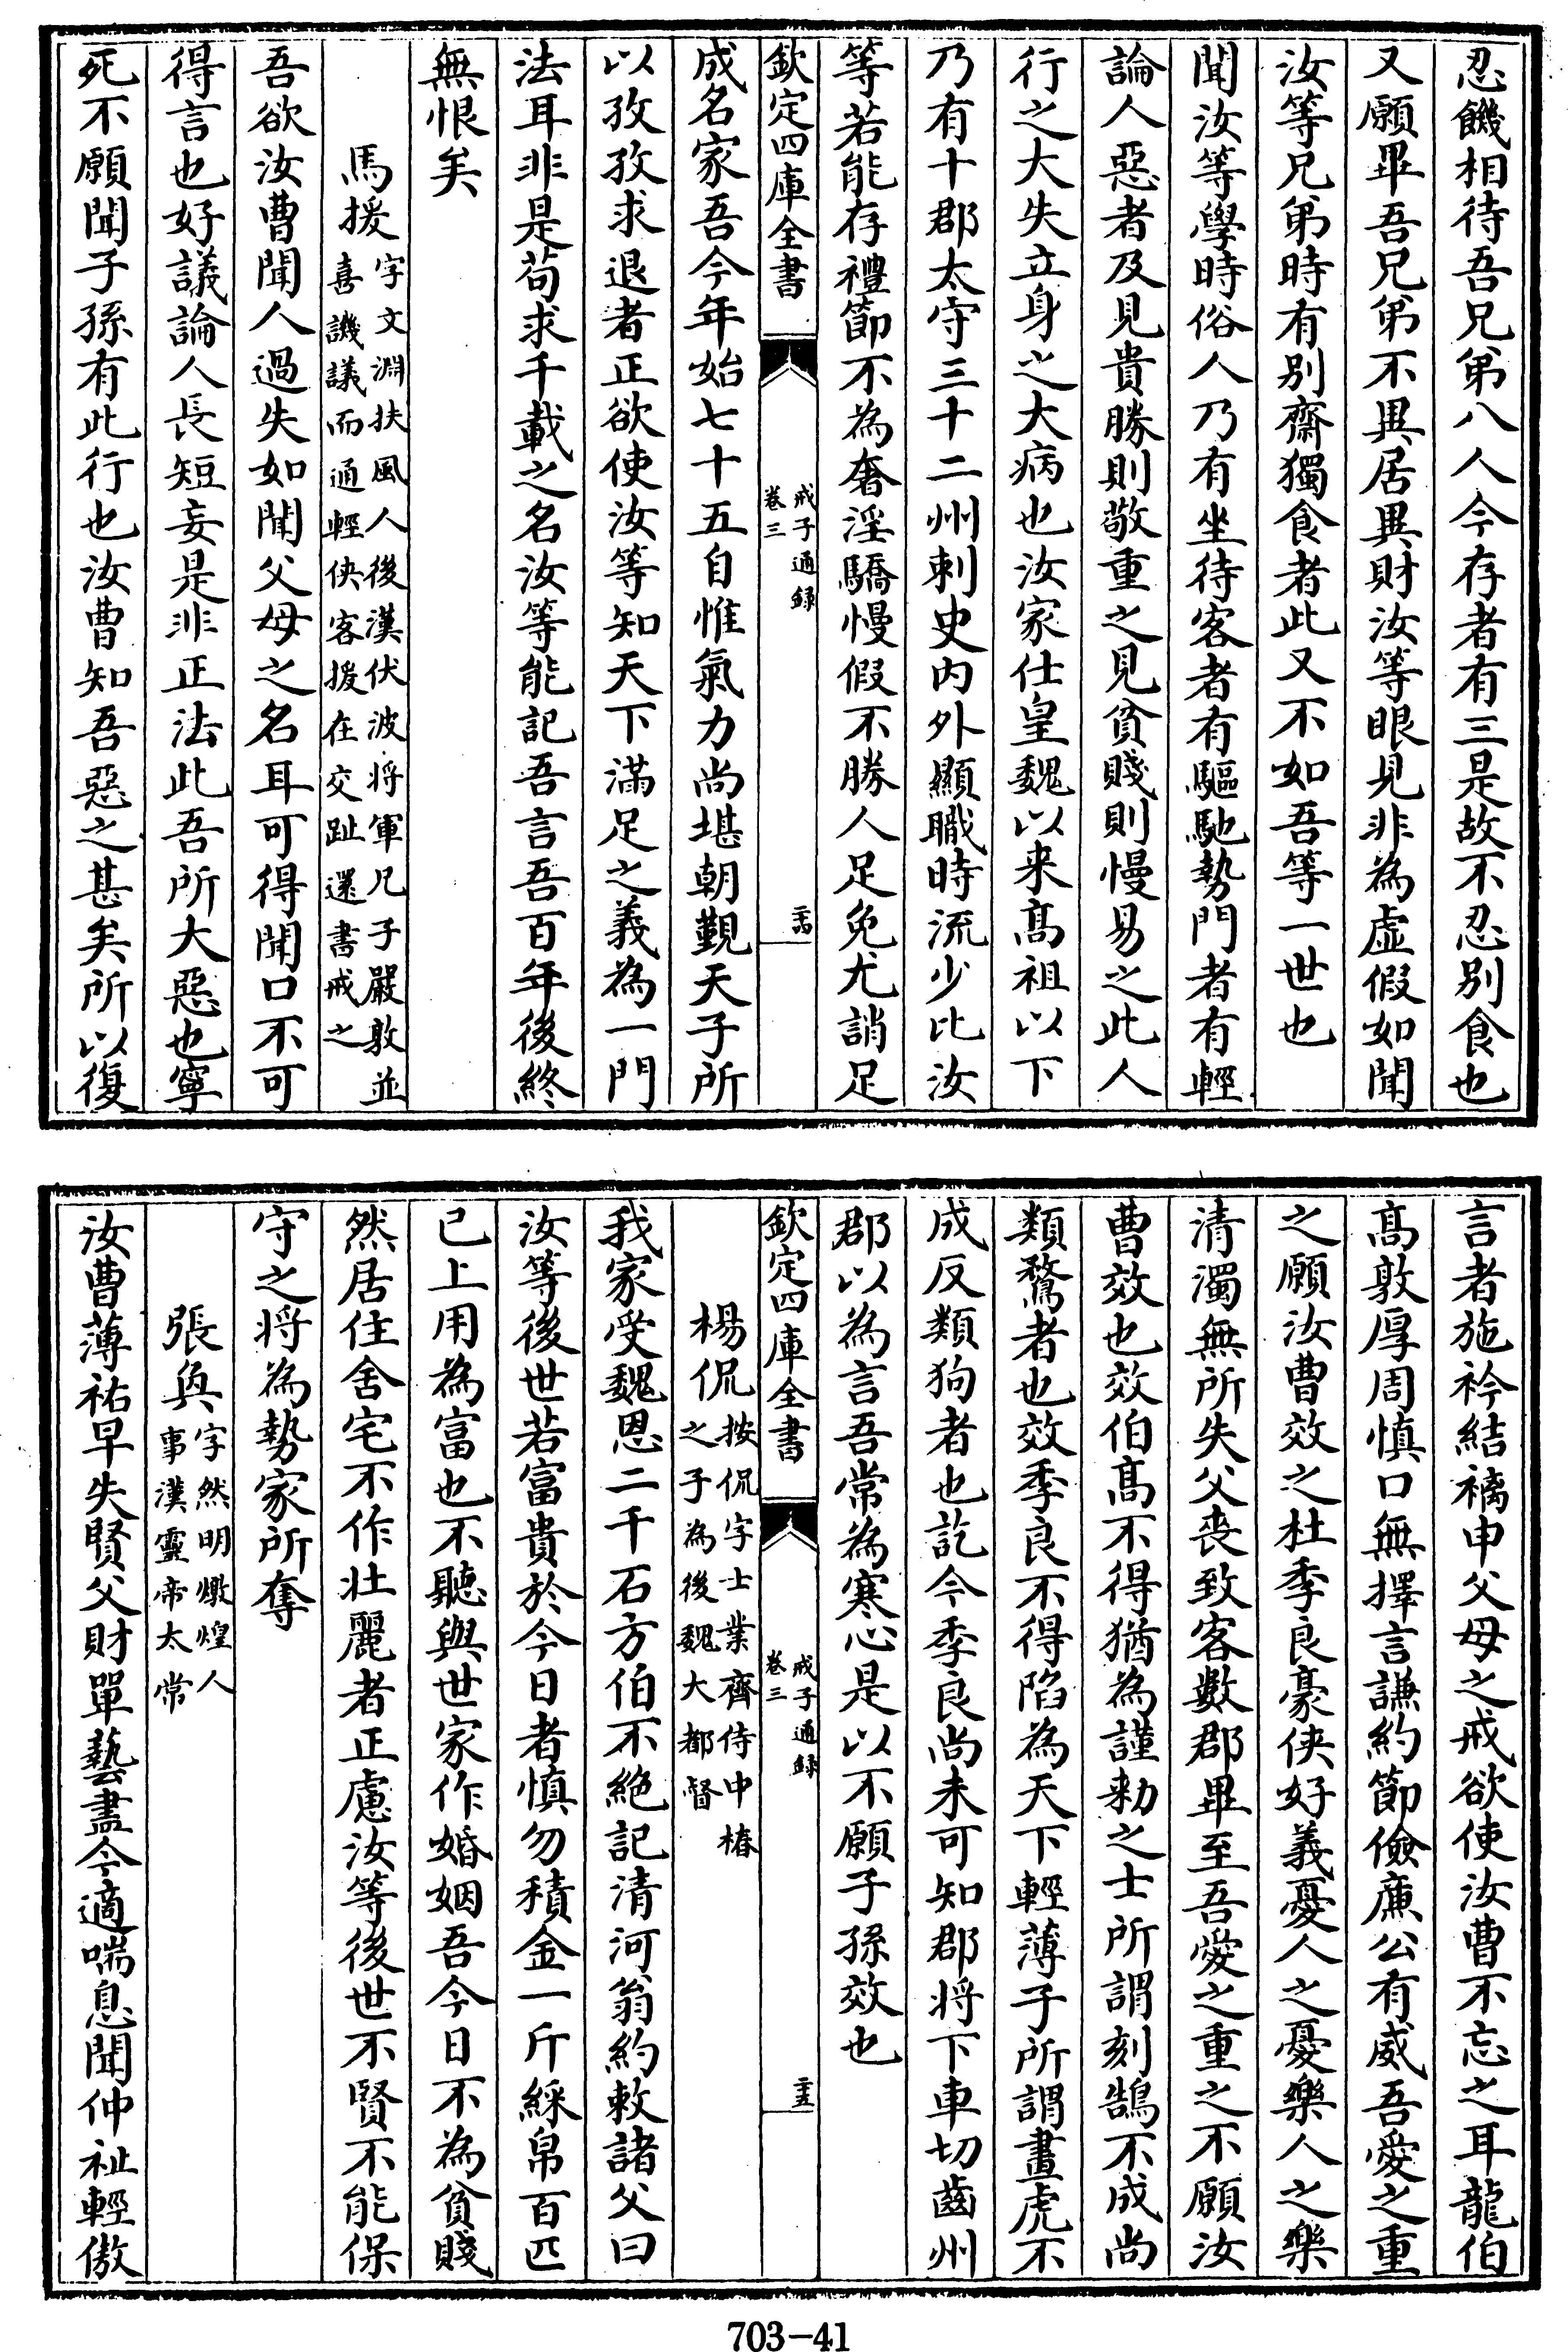 忍饑相待吾兄弟八人今存者有三是故不忍别食也
又願畢吾兄弟不異居異財汝等眼見非為虛假如聞
汝等兄弟時有别齋獨食者此又不如吾等一世也
聞汝等學時俗人乃有坐待客者有驅馳勢門者有輕
論人惡者及見貴勝則敬重之見貧賤則慢易之此人
行之大失立身之大病也汝家仕皇魏以来髙祖以下
乃有十郡太守三十二州刺史内外顯職時流少比汝
等若能存禮節不為奢淫驕慢假不勝人足免尤誚足
欽定四庫全書
戒子通録
卷三
二十四
成名家吾今年始七十五自惟氣力尚堪朝覲天子所
以孜孜求退者正欲使汝等知天下滿足之義為一門
法耳非是茍求千載之名汝等能記吾言吾百年後終
無恨矣
馬援字文淵扶風人後漢伏波将軍兄子嚴敦並
喜譏議而通輕俠客援在交趾還書戒之
吾欲汝曹聞人過失如聞父母之名耳可得聞口不可
得言也好議論人長短妄是非正法此吾所大惡也寧
死不願聞子孫有此行也汝曹知吾惡之甚矣所以復
言者施衿結褵申父母之戒欲使汝曹不忘之耳龍伯
髙敦厚周慎口無擇言謙約節儉廉公有威吾愛之重
之願汝曹效之杜季良豪俠好義憂人之憂樂人之樂
清濁無所失父喪致客數郡畢至吾愛之重之不願汝
曹效也效伯髙不得猶為謹勑之士所謂刻鵠不成尚
類鶩者也效季良不得陷為天下輕薄子所謂畫虎不
成反類狗者也訖今季良尚未可知郡将下車切齒州
郡以為言吾常為寒心是以不願子孫效也
欽定四庫全書
戒子通録
卷三
二十五
楊侃按侃字士業齊侍中椿
之子為後魏大都督
我家受魏恩二千石方伯不絶記清河翁約敕諸父曰
汝等後世若富貴於今日者慎勿積金一斤綵帛百匹
已上用為富也不聽與世家作婚姻吾今日不為貧賤
然居住舍宅不作壯麗者正慮汝等後世不賢不能保
守之将為勢家所奪
張奐字然明燉煌人
事漢靈帝太常
汝曹薄祐早失賢父財單藝盡今適喘息聞仲祉輕傲
703-41